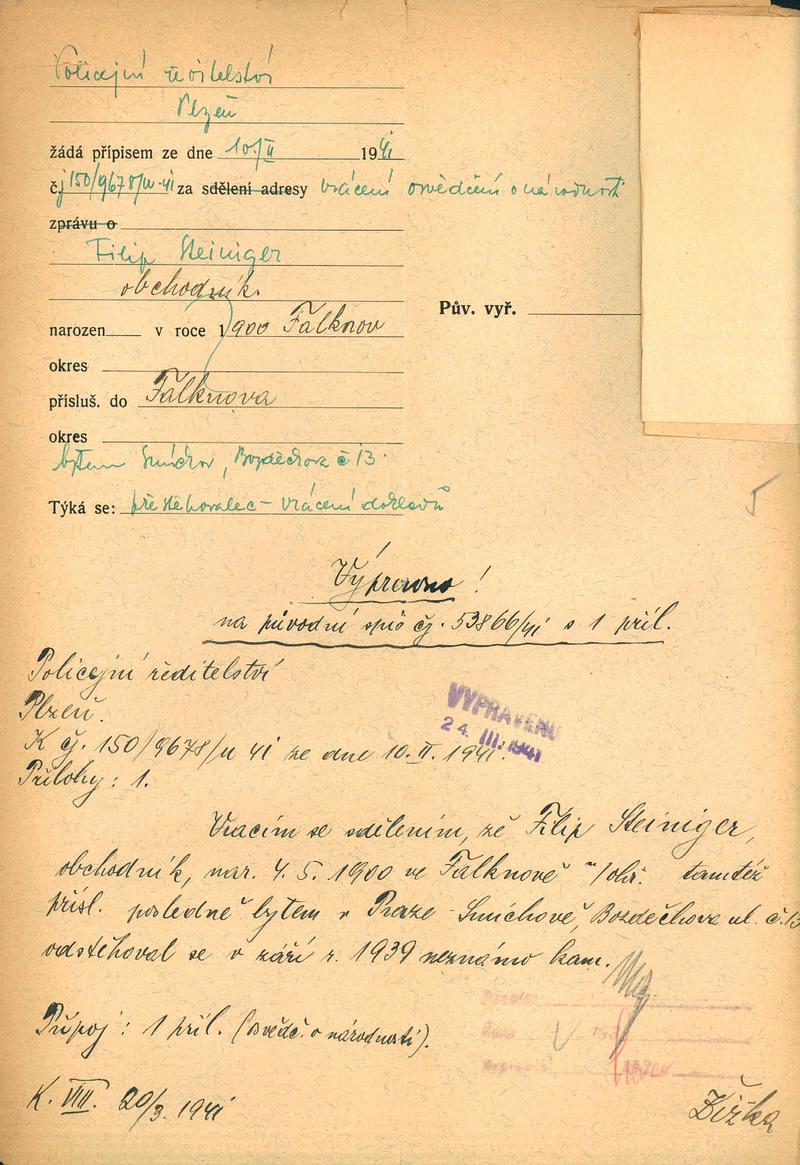 Policejní ředitelství
Plzeň
žádá přípisem ze dne 10./II 1941
č.j 150/9678/IV-41 za sdělení adresy vrácení osvědčení o národnosti
zprávu o
Filip Steiniger
obchodník.
narozen v roce 1900 Falknov
Pův. vyř.
okres
přísluš. do Falknova
okres
bytem Smíchov, Bozděchova č 13.
Týká se: přestěhovalec - vrácení dokladů
5
Výpravno!
na původní spis čj. 53866/41 s 1 příl.
Policejní ředitelství
Plzeň.
VYPRAVENO
24. III. 1941
K čj. 150/9678/ 41 ze dne 10. II. 1941.
Přílohy: 1.
Vracím se sdělením, že Filip Steiniger,
obchodník, nar. 4. 5. 1900 ve Falknově n/ohř. tamtéž
přísl. posledně bytem v Praze - Smíchově, Bozděchova ul. č. 13
odstěhoval se v září r. 1939 neznámo kam.
Připoj: 1 příl. (osvědč. o národnosti).
K. VIII. 20/3. 1941
Žižka